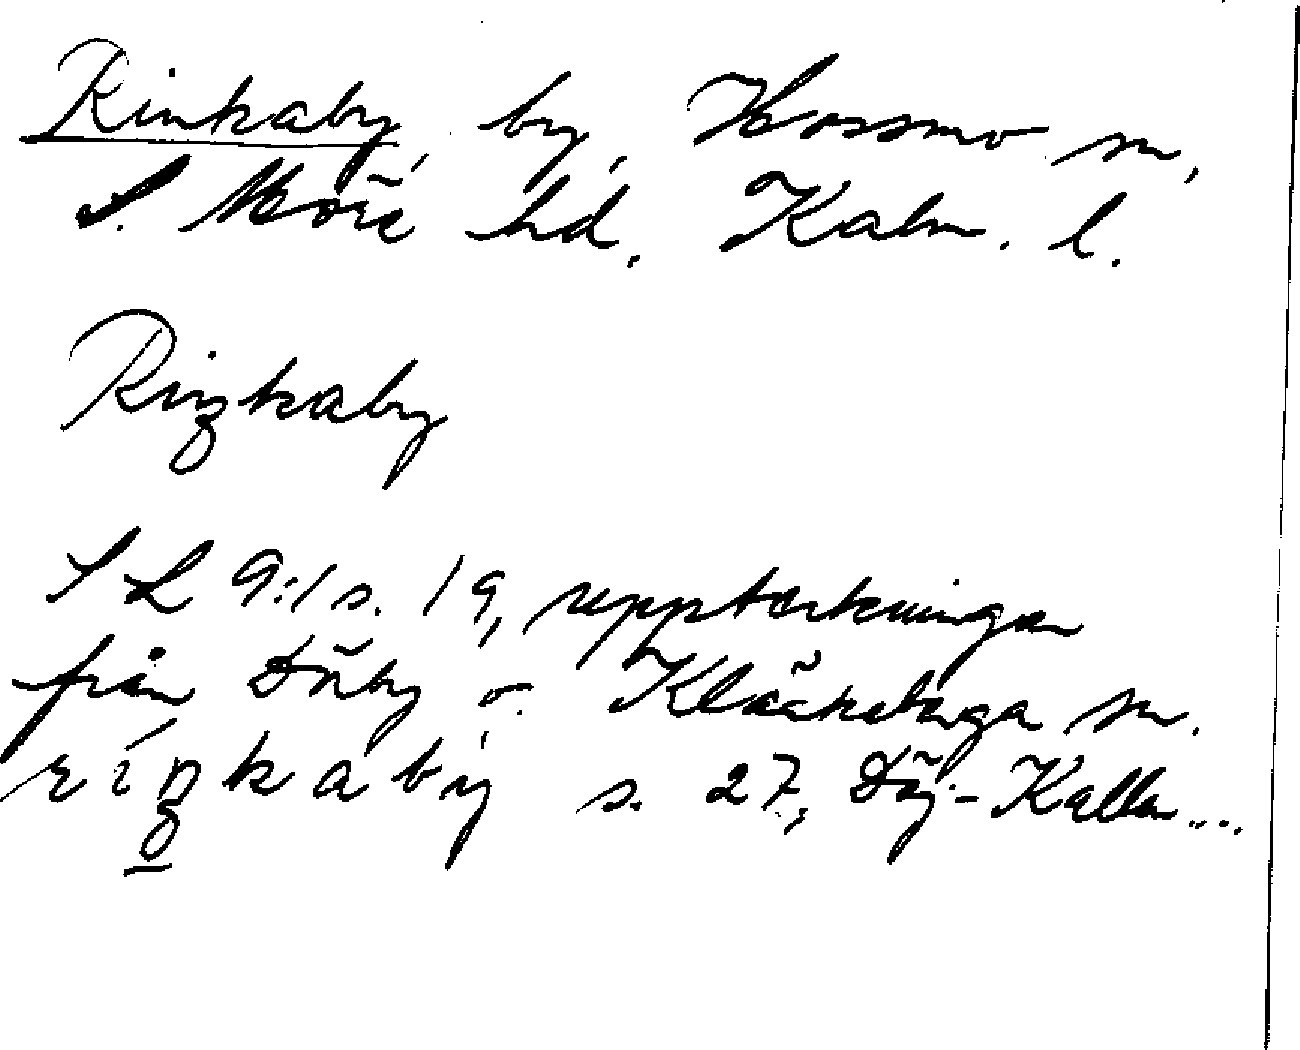 Rinkaby, by, Hossmo sn,
S. Möre hd. Kalm. l.
Riŋkaby
SL 9:1 s. 19, uppteckningar
från Dörby o. Kläckeberga sn.
ríŋkabỳ s. 27, Döj-Kalle...